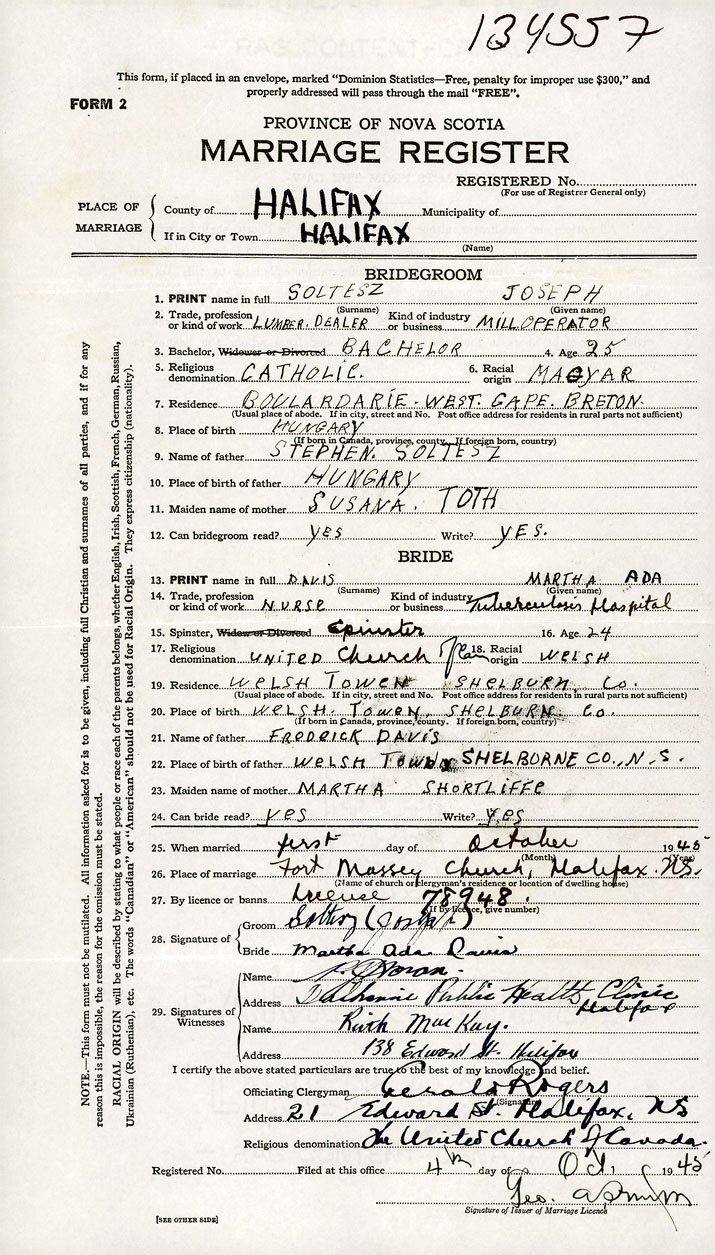 134557
This form, if placed in an envelope, marked "Dominion Statistics—Free, penalty for improper use $300," and
properly addressed will pass through the mail "FREE".
FORM 2
PROVINCE OF NOVA SCOTIA
MARRIAGE REGISTER
REGISTERED No.
(For use of Registrar General only)
PLACE OF MARRIAGE
County of HALIFAX Municipality of
If in City or Town HALIFAX
(Name)
BRIDEGROOM
1. PRINT name in full SOLTESZ JOSEPH
(Surname) (Given name)
2. Trade, profession or kind of work LUMBER. DEALER Kind of industry or business MILL OPERATOR
3. Bachelor, Widower or Divorced BACHELOR 4. Age 25
5. Religious denomination CATHOLIC. 6. Racial origin MAGYAR
7. Residence BOULARDARIE. WEST. CAPE. BRETON.
(Usual place of abode. If in city, street and No. Post office address for residents in rural parts not sufficient)
8. Place of birth HUNGARY
(If born in Canada, province, county. If foreign born, country)
9. Name of father STEPHEN. SOLTESZ
10. Place of birth of father HUNGARY
11. Maiden name of mother SUSANA. TOTH
12. Can bridegroom read? YES Write? YES.
BRIDE
13. PRINT name in full DAVIS MARTHA ADA
(Surname) (Given name)
14. Trade, profession or kind of work NURSE Kind of industry or business Tuberculosis Hospital
15. Spinster, Widow or Divorced Spinster 16. Age 24
17. Religious denomination UNITED Church of Can 18. Racial origin WELSH
19. Residence WELSH TOWEN SHELBURN. Co.
(Usual place of abode. If in city, street and No. Post office address for residents in rural parts not sufficient)
20. Place of birth WELSH. TOWEN. SHELBURN Co.
(If born in Canada, province, county. If foreign born, country)
21. Name of father FRODRICK DAVIS
22. Place of birth of father WELSH TOWN SHELBORNE CO., N.S.
23. Maiden name of mother MARTHA SHORTLIFFE
24. Can bride read? yes Write? yes
25. When married first day of October 1945
(Month) (Year)
26. Place of marriage Fort Massey Church, Halifax. NS.
(Name of church or clergyman's residence or location of dwelling house)
27. By licence or banns license 78948.
(If by licence, give number)
28. Signature of
Groom (Joseph)
Bride Martha Ada Davis
29. Signatures of Witnesses
Name
Address Dalhousie Public Health Clinic Halifax
Name Ruth MacKay.
Address 138 Edward St. Halifax
I certify the above stated particulars are true to the best of my knowledge and belief.
Officiating Clergyman Gerald Rogers
(Signature)
Address 21 Edward St. Halifax, NS
Religious denomination The United Church of Canada.
Registered No. Filed at this office 4th day of Oct. 1945
Geo.
Signature of Issuer of Marriage Licence
[SEE OTHER SIDE]
NOTE.—This form must not be mutilated. All information asked for is to be given, including full Christian and surnames of all parties, and if for any
reason this is impossible, the reason for the omission must be stated.
RACIAL ORIGIN will be described by stating to what people or race each of the parents belongs, whether English, Irish, Scottish, French, German, Russian,
Ukrainian (Ruthenian), etc. The words "Canadian" or "American" should not be used for Racial Origin. They express citizenship (nationality).